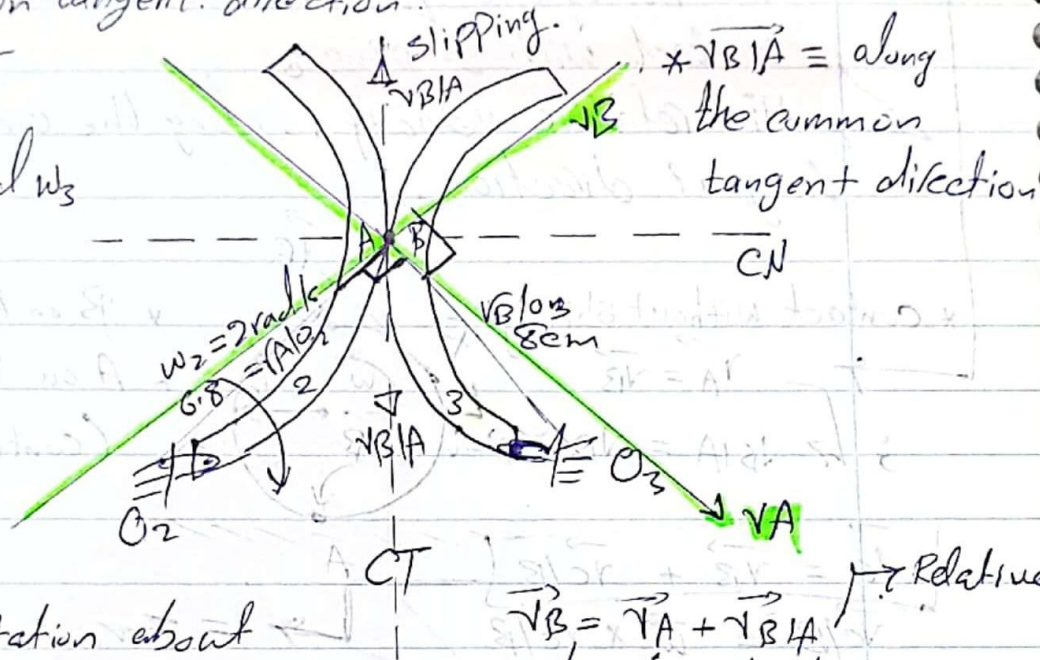 in tangent. direction.
slipping.
VB/A
* VB/A ≡ along
the common
tangent direction
VB
w3
A B
CN
w2 = 2 rad/s
6.8 = rA/O2
rB/O3
8cm
2
3
VB/A
O3
O2
VA
CT
Relative
VB = VA + VB/A
tation about